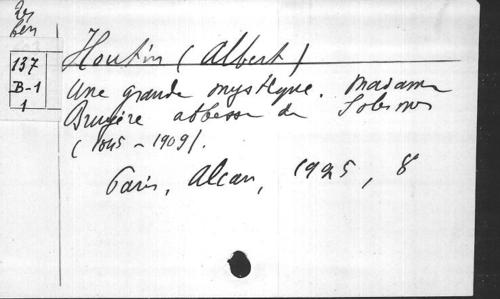 Houtin (Albert)
137
B-1
1
Une grande mystique. Madame
Bruyère abbesse de Solesmes
(1845-1909).
Paris, Alcan, 1925, 8°